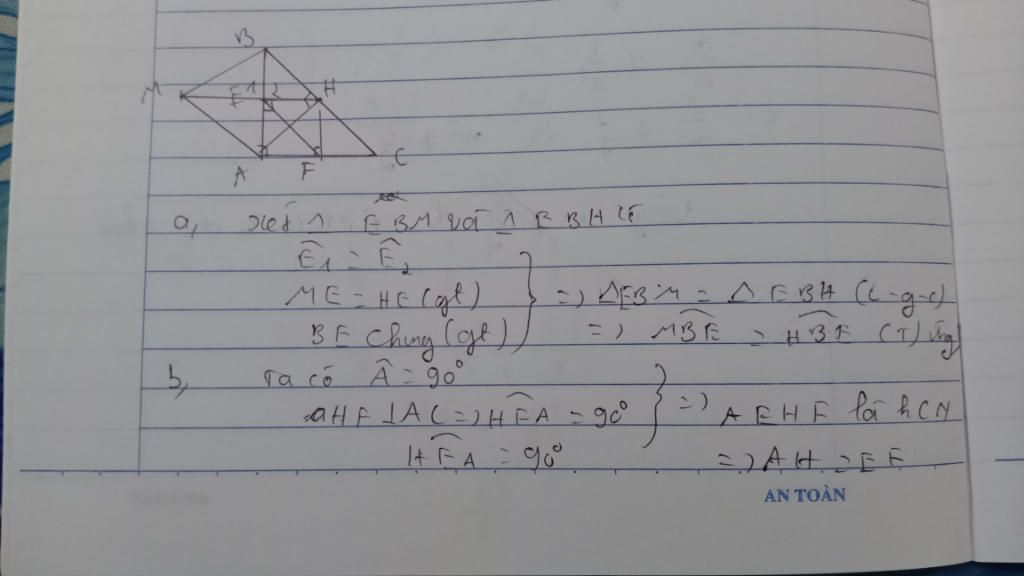 B
M E 1 2 H
A F C
a, xét △ EBM và △ EBH có
Ê1 = Ê2
ME = HE (gt)
BE chung (gt)
=> △EBM = △EBH (c-g-c)
=> MBE = HBE (T) ứng
b, Ta có Â = 90°
HF ⊥ AC => HFA = 90°
HEA = 90°
=> AEHF là hCN
=> AH = EF
AN TOÀN